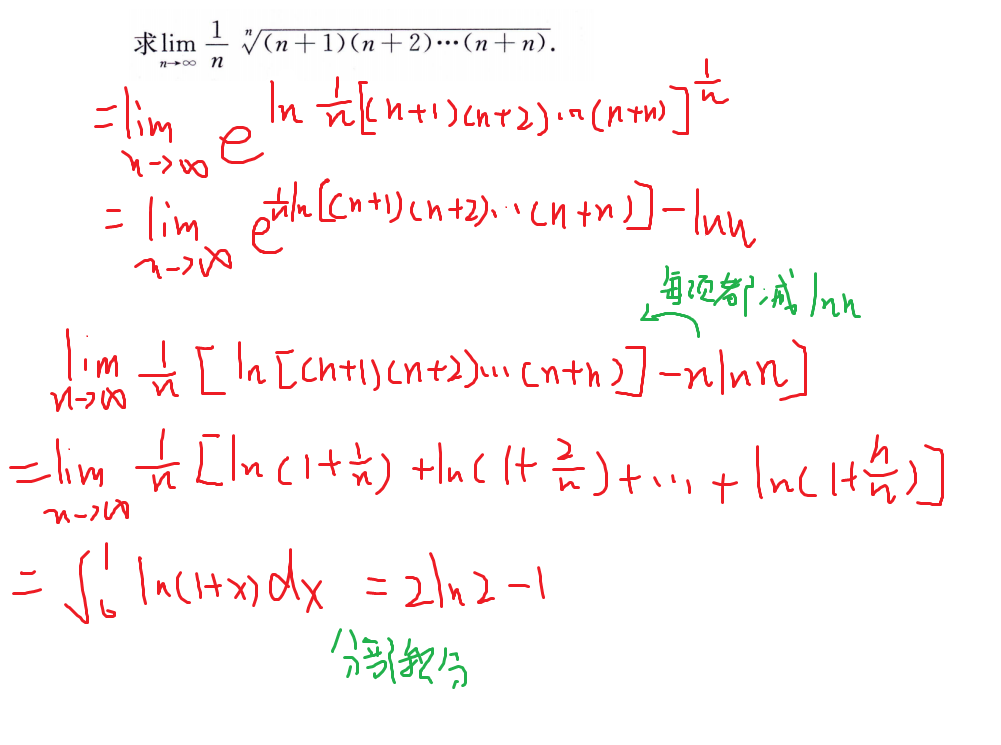 求lim_{n→∞} \frac{1}{n} \sqrt[n]{(n+1)(n+2)⋯(n+n)}.
=lim_{n→∞} e^{ln \frac{1}{n}[(n+1)(n+2)⋯(n+n)]^{\frac{1}{n}}}
=lim_{n→∞} e^{\frac{1}{n}ln[(n+1)(n+2)⋯(n+n)]-lnn}
每项都减lnn
lim_{n→∞} \frac{1}{n}[ln[(n+1)(n+2)⋯(n+n)]-nlnn]
=lim_{n→∞} \frac{1}{n}[ln(1+\frac{1}{n})+ln(1+\frac{2}{n})+⋯+ln(1+\frac{n}{n})]
=∫_0^1 ln(1+x)dx =2ln2-1
分部积分